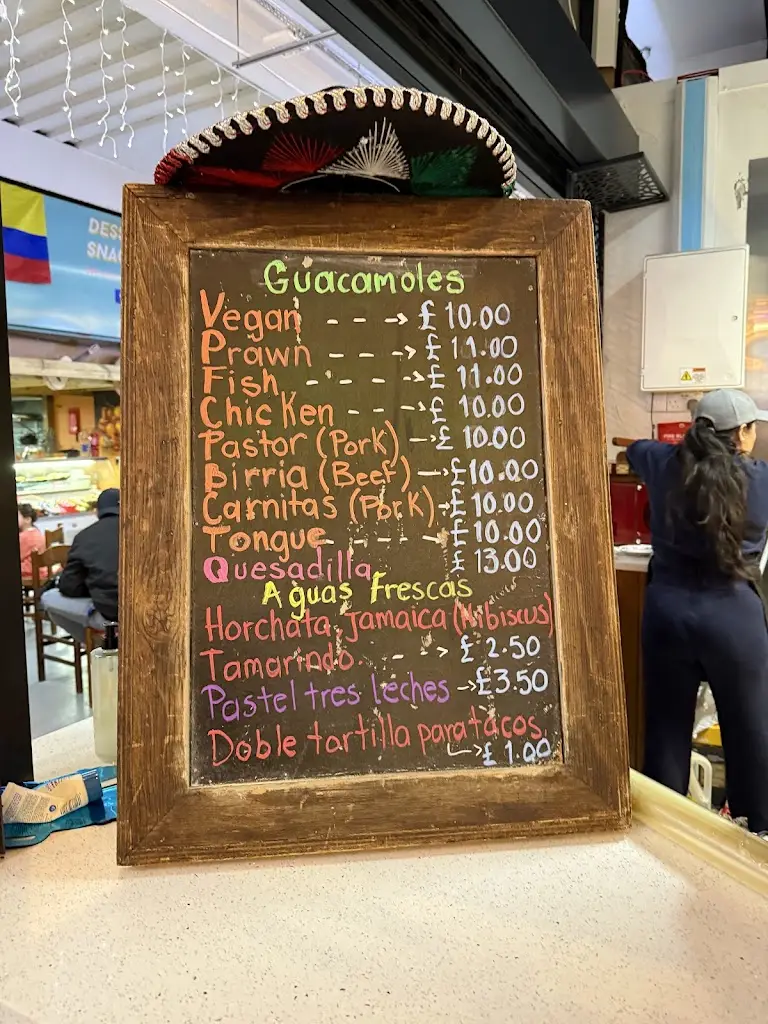 DESS
SNA
Guacamoles
Vegan - - - → £ 10.00
Prawn - - - → £ 11.00
Fish - - - → £ 11.00
Chicken - - - → £ 10.00
Pastor (Pork) → £ 10.00
Birria (Beef) → £10.00
Carnitas (Pork) → £ 10.00
Tongue - - - → £ 10.00
Quesadilla £ 13.00
Aguas Frescas
Horchata, Jamaica (Hibiscus)
Tamarindo - - → £ 2.50
Pastel tres leches → £3.50
Doble tortilla para tacos.
→ £ 1.00